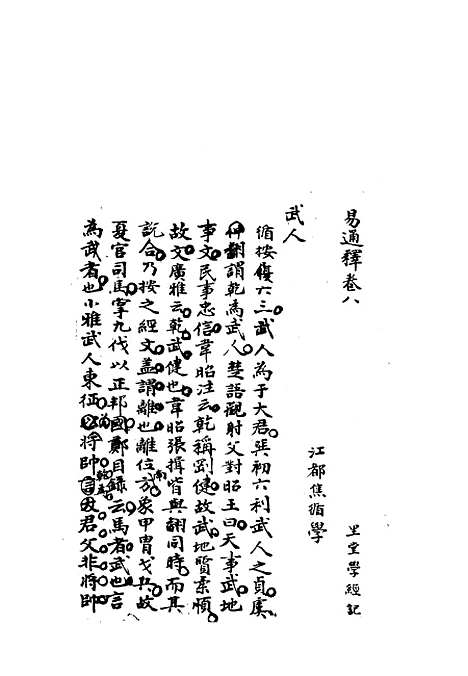 易通釋卷八
里堂學經記
江都焦循學
武人
循按履六三武人為于大君巽初六利武人之貞虞
仲翻謂乾為武人楚語觀射父對昭王曰天事武地
事文民事忠信韋昭注云乾稱剛健故武地質柔順
故文廣雅云乾武健也韋昭張揖皆與翻同時而其
說合乃按之經文蓋謂離也離位南方象甲冑戈兵故
夏官司馬掌九伐以正邦國鄭目錄云馬者武也言
為武者也小雅武人東征將帥言君父非將帥